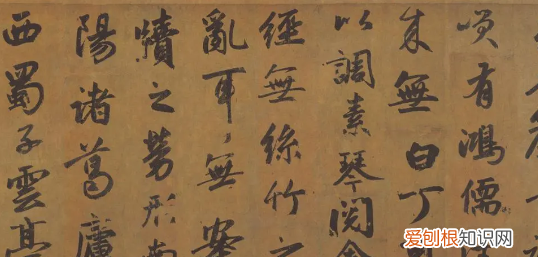 咲有鴻儒
来無白丁可
以調素琴閱金
經無絲竹之
亂耳無案
牘之勞形南
陽諸葛廬
西蜀子雲亭
爱刨根知识网